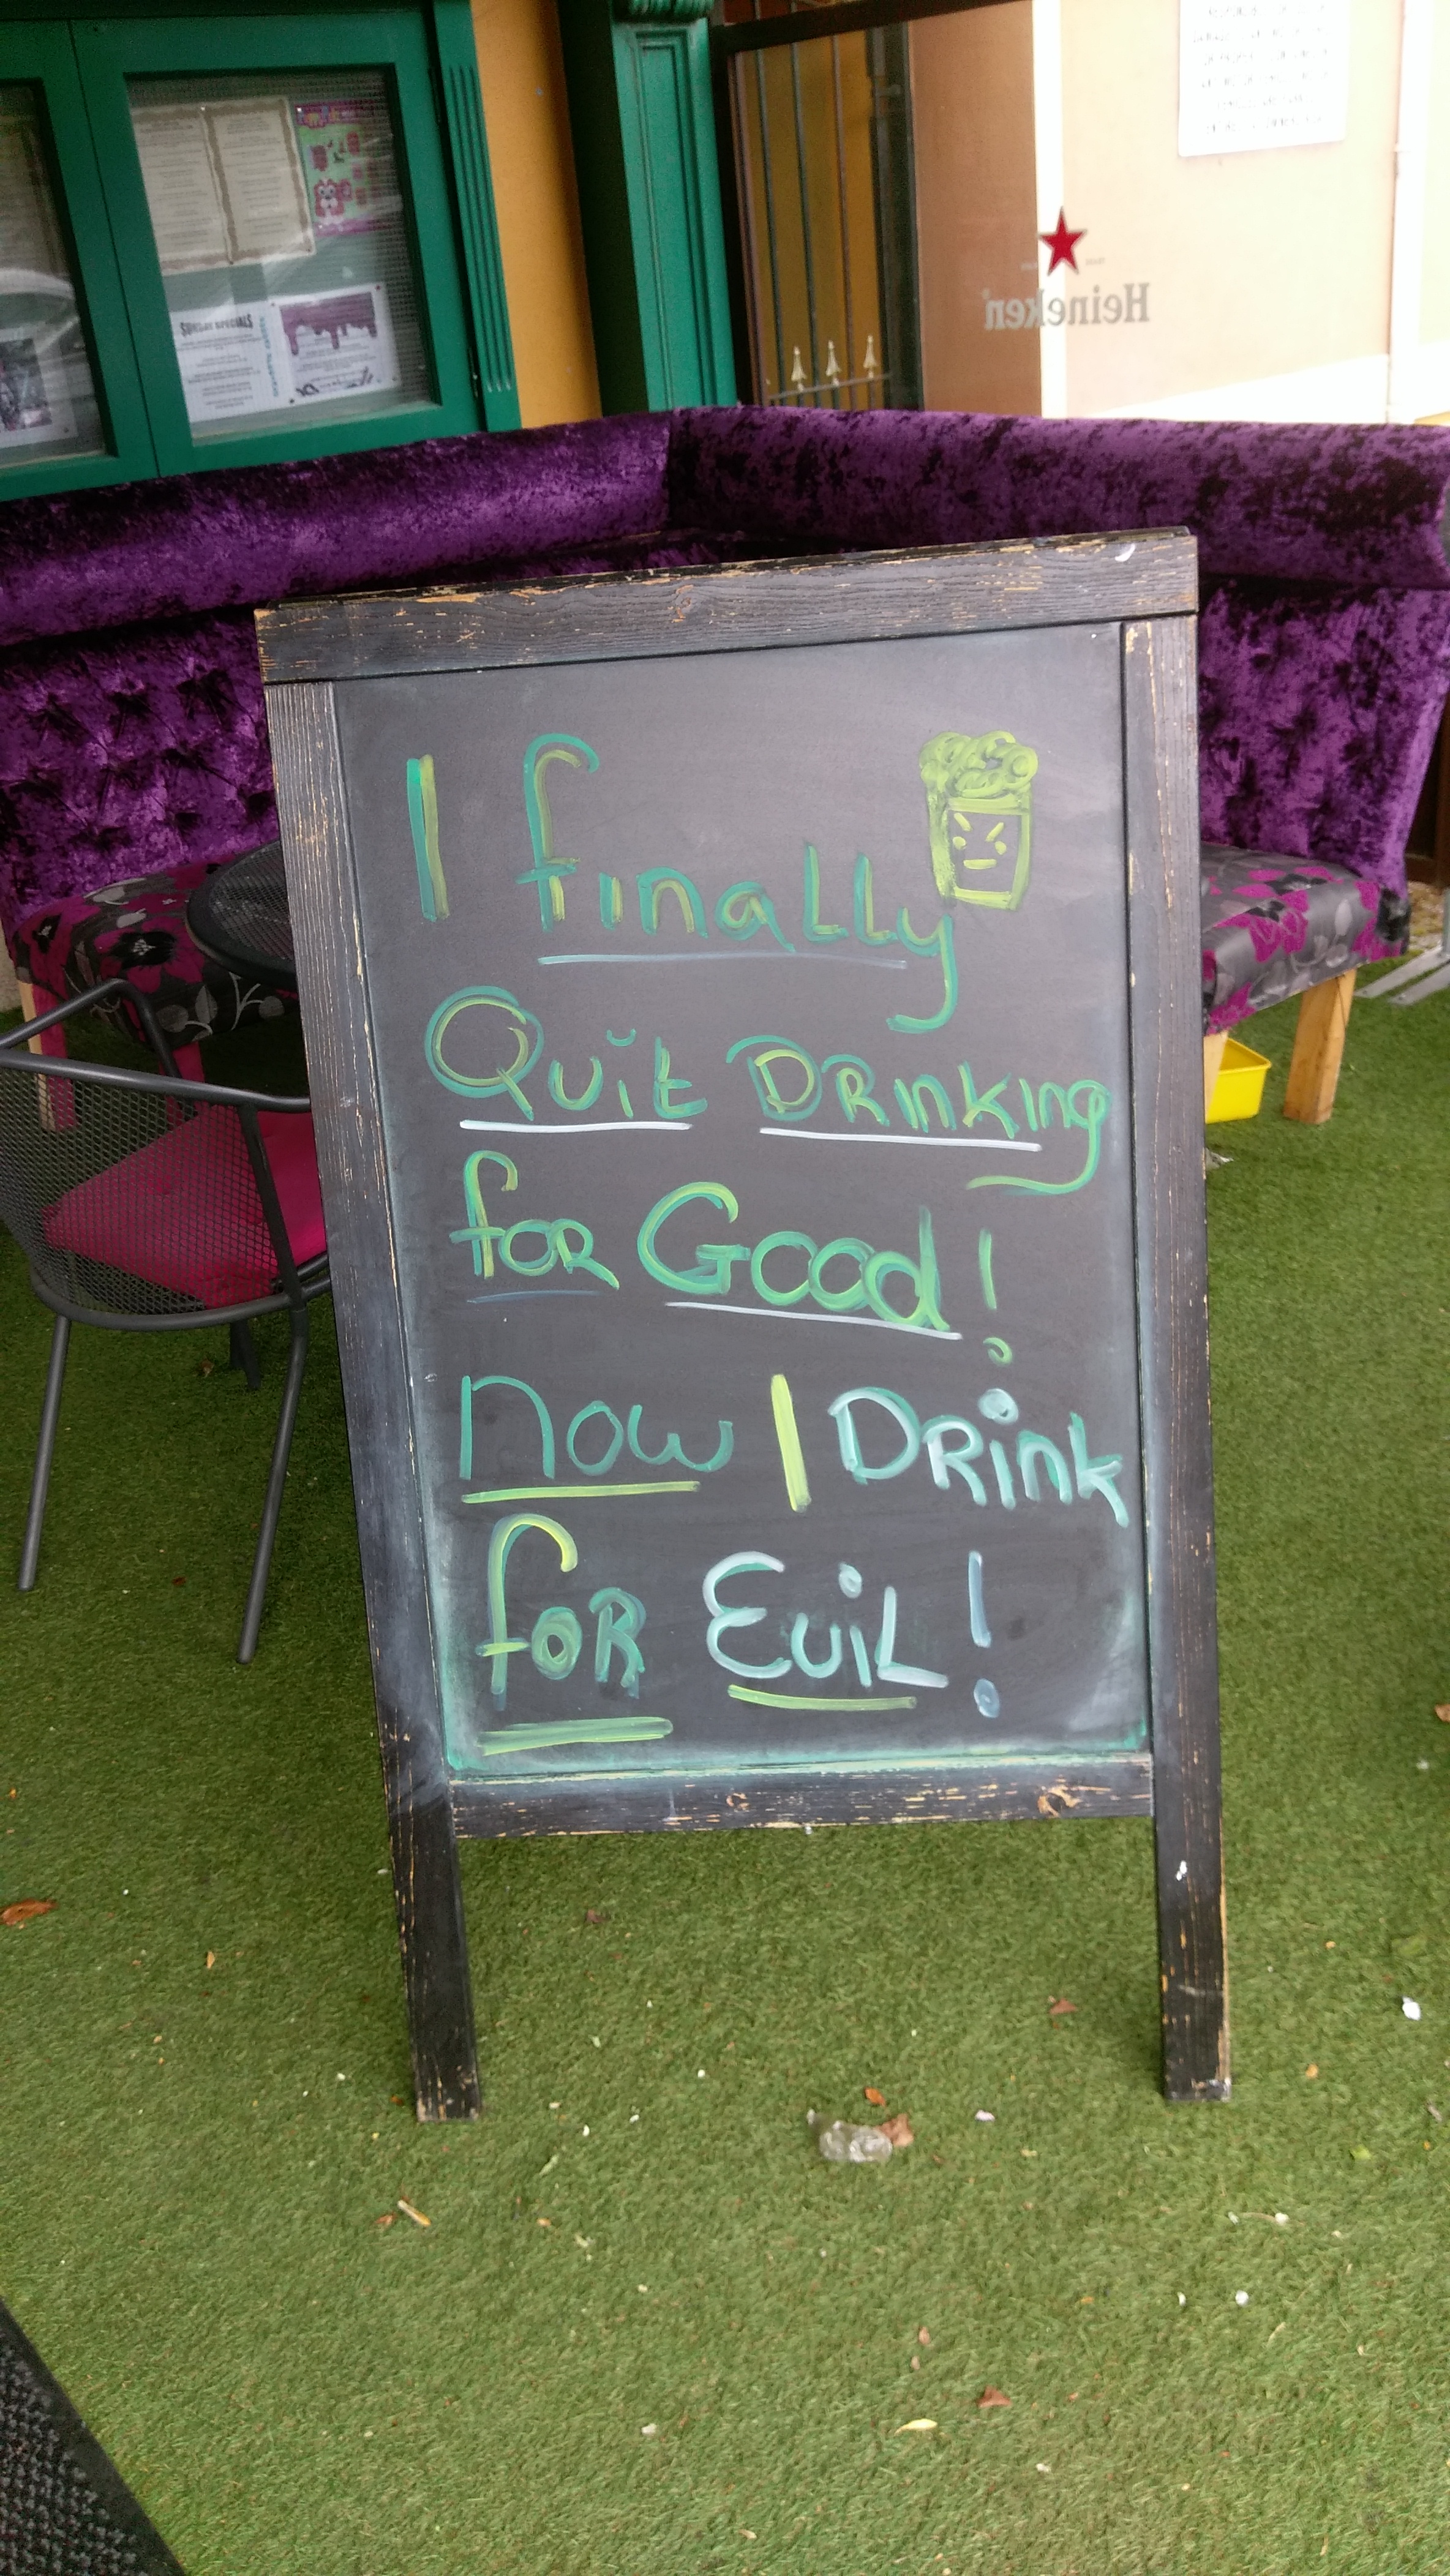 SUNDAY SPECIALS
Heineken
I finally
Quit Drinking
for Good!
Now I Drink
for Evil!